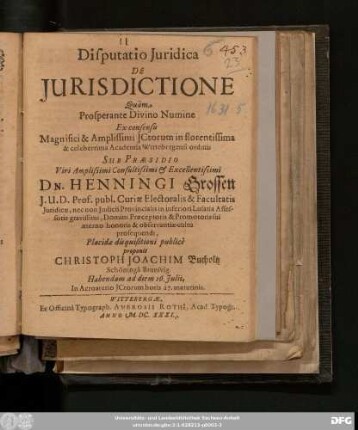 Disputatio Juridica
DE
JURISDICTIONE
Quam
Prosperante Divino Numine
Ex consensu
Magnifici & Amplissimi JCtorum in florentissima
& celeberrima Academia Wittebergensi ordinis
SUB PRÆSIDIO
Viri Amplissimi Consultissimi & Excellentissimi
DN. HENNINGI Grossen
J.U.D. Prof. publ. Curiæ Electoralis & Facultatis
Juridicæ, nec non Judicii Provincialis in inferiori Lusatia Assessoris gravissimi, Domini Præceptoris & Promotoris sui
æterno honoris & observantiæ cultu
prosequendi,
Placidæ disquisitioni publicè
proponit
CHRISTOPH JOACHIM Bucholtz
Schöningâ Brunsvig.
Habendam ad diem 16. Julii,
In Acroaterio JCtorum horis matutinis.
WITTEBERGÆ,
Ex Officinâ Typograph. AMBROSII ROTHI, Acad. Typogr.
ANNO M. DC. XXXI.
1631. 5
453
23
Universitäts- und Landesbibliothek Sachsen-Anhalt
DFG